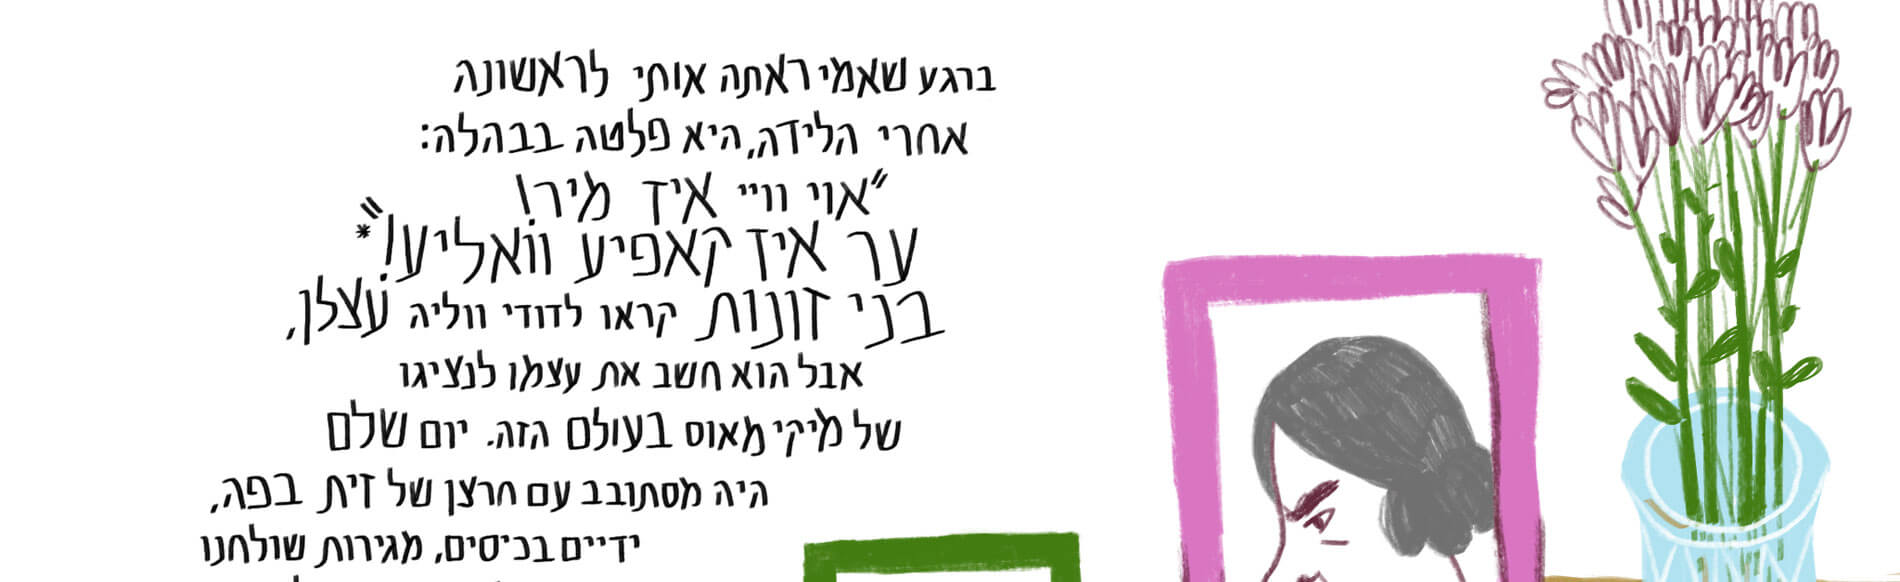 ברגע שאמי ראתה אותי לראשונה
אחרי הלידה, היא פלטה בבהלה:
"אוי וויי איז מיר!
ער איז קאפיע וואליע!"*
בני זונות קראו לדודי ווליה עצלן,
אבל הוא חשב את עצמו לנציגו
של מיקי מאוס בעולם הזה. יום שלם
היה מסתובב עם חרצן של זית בפה,
ידיים בכיסים, מגירות שולחנו